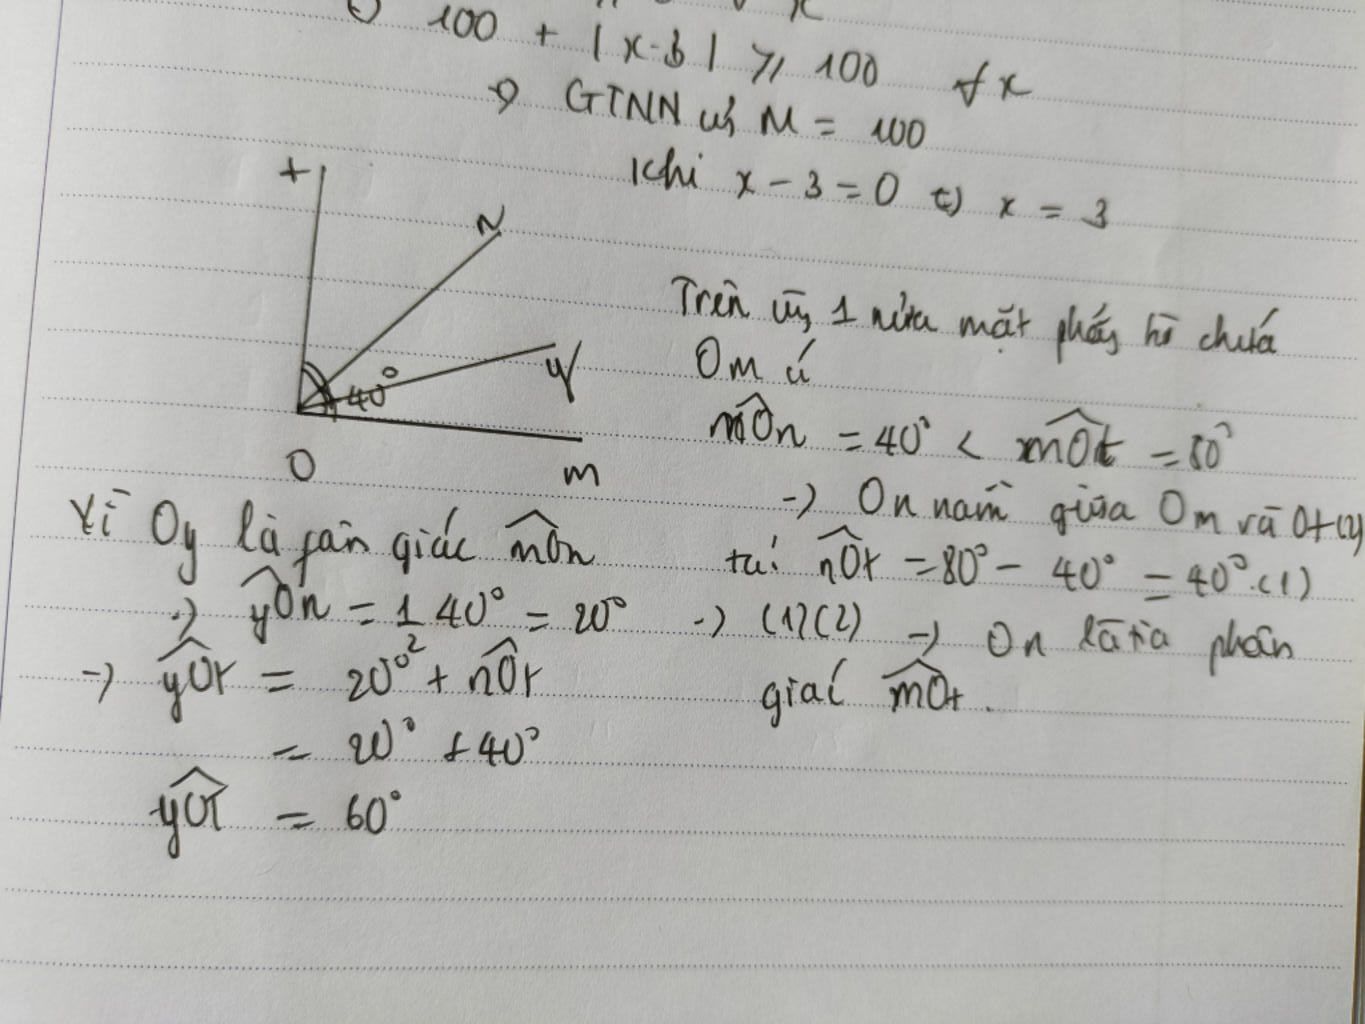 100 + |x-3| ≥ 100 ∀x
=> GTNN của M = 100
Khi x - 3 = 0 <=> x = 3
t
N
y
40°
O
m
Trên cùng 1 nửa mặt phẳng bờ chứa
Om có
mOn = 40° < mOt = 80°
-> On nằm giữa Om và Ot (2)
nOt = 80° - 40° = 40° (1)
-> (1)(2) -> On là tia phân
giác mOt.
Vì Oy là fân giác mOn
-> yOn = 1 40° = 20°
2
-> yOt = 20° + nOt
= 20° + 40°
yOt = 60°